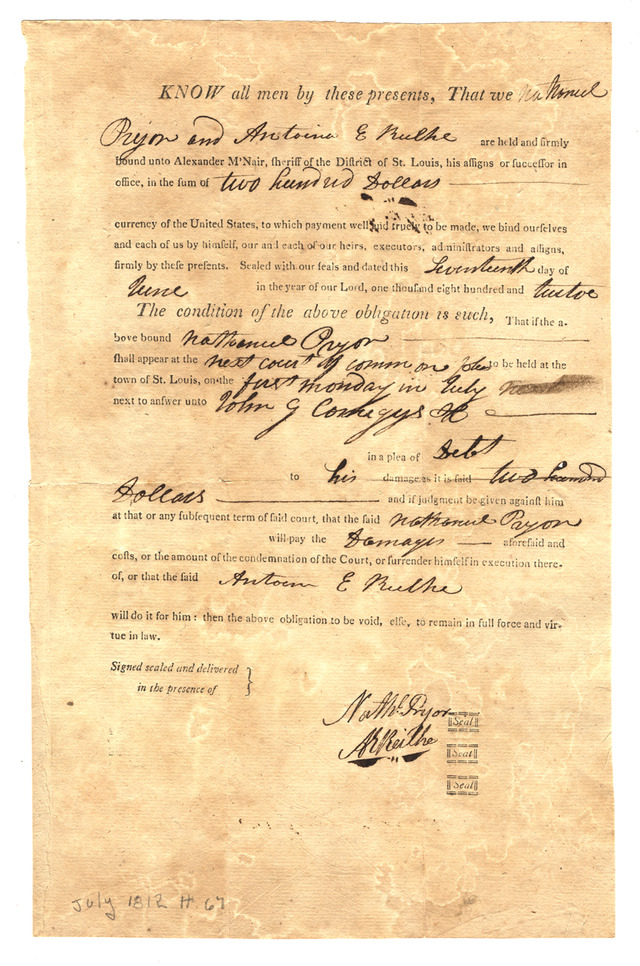 KNOW all men by these presents, That we Nathaniel
Pryor and Antoine E Rulhe are held and firmly
bound unto Alexander M'Nair, sheriff of the District of St. Louis, his assigns or successor in
office, in the sum of two hundred Dollars
currency of the United States, to which payment well and truely to be made, we bind ourselves
and each of us by himself, our and each of our heirs, executors, administrators and assigns,
firmly by these presents. Sealed with our seals and dated this Seventeenth day of
June in the year of our Lord, one thousand eight hundred and twelve
The condition of the above obligation is such, That if the a-
bove bound Nathaniel Pryor
shall appear at the next court of common pleas to be held at the
town of St. Louis, on the first monday in July
next to answer unto John G Comegys &c
in a plea of Debt
to his damage as it is said two hundred
Dollars and if judgment be given against him
at that or any subsequent term of said court, that the said Nathaniel Pryor
will pay the Damages aforesaid and
costs, or the amount of the condemnation of the Court, or surrender himself in execution there-
of, or that the said Antoine E Rulhe
will do it for him: then the above obligation to be void, else, to remain in full force and vir-
tue in law.
Signed sealed and delivered }
in the presence of
Nathl. Pryor Seal
Seal
Seal
July 1812 # 67